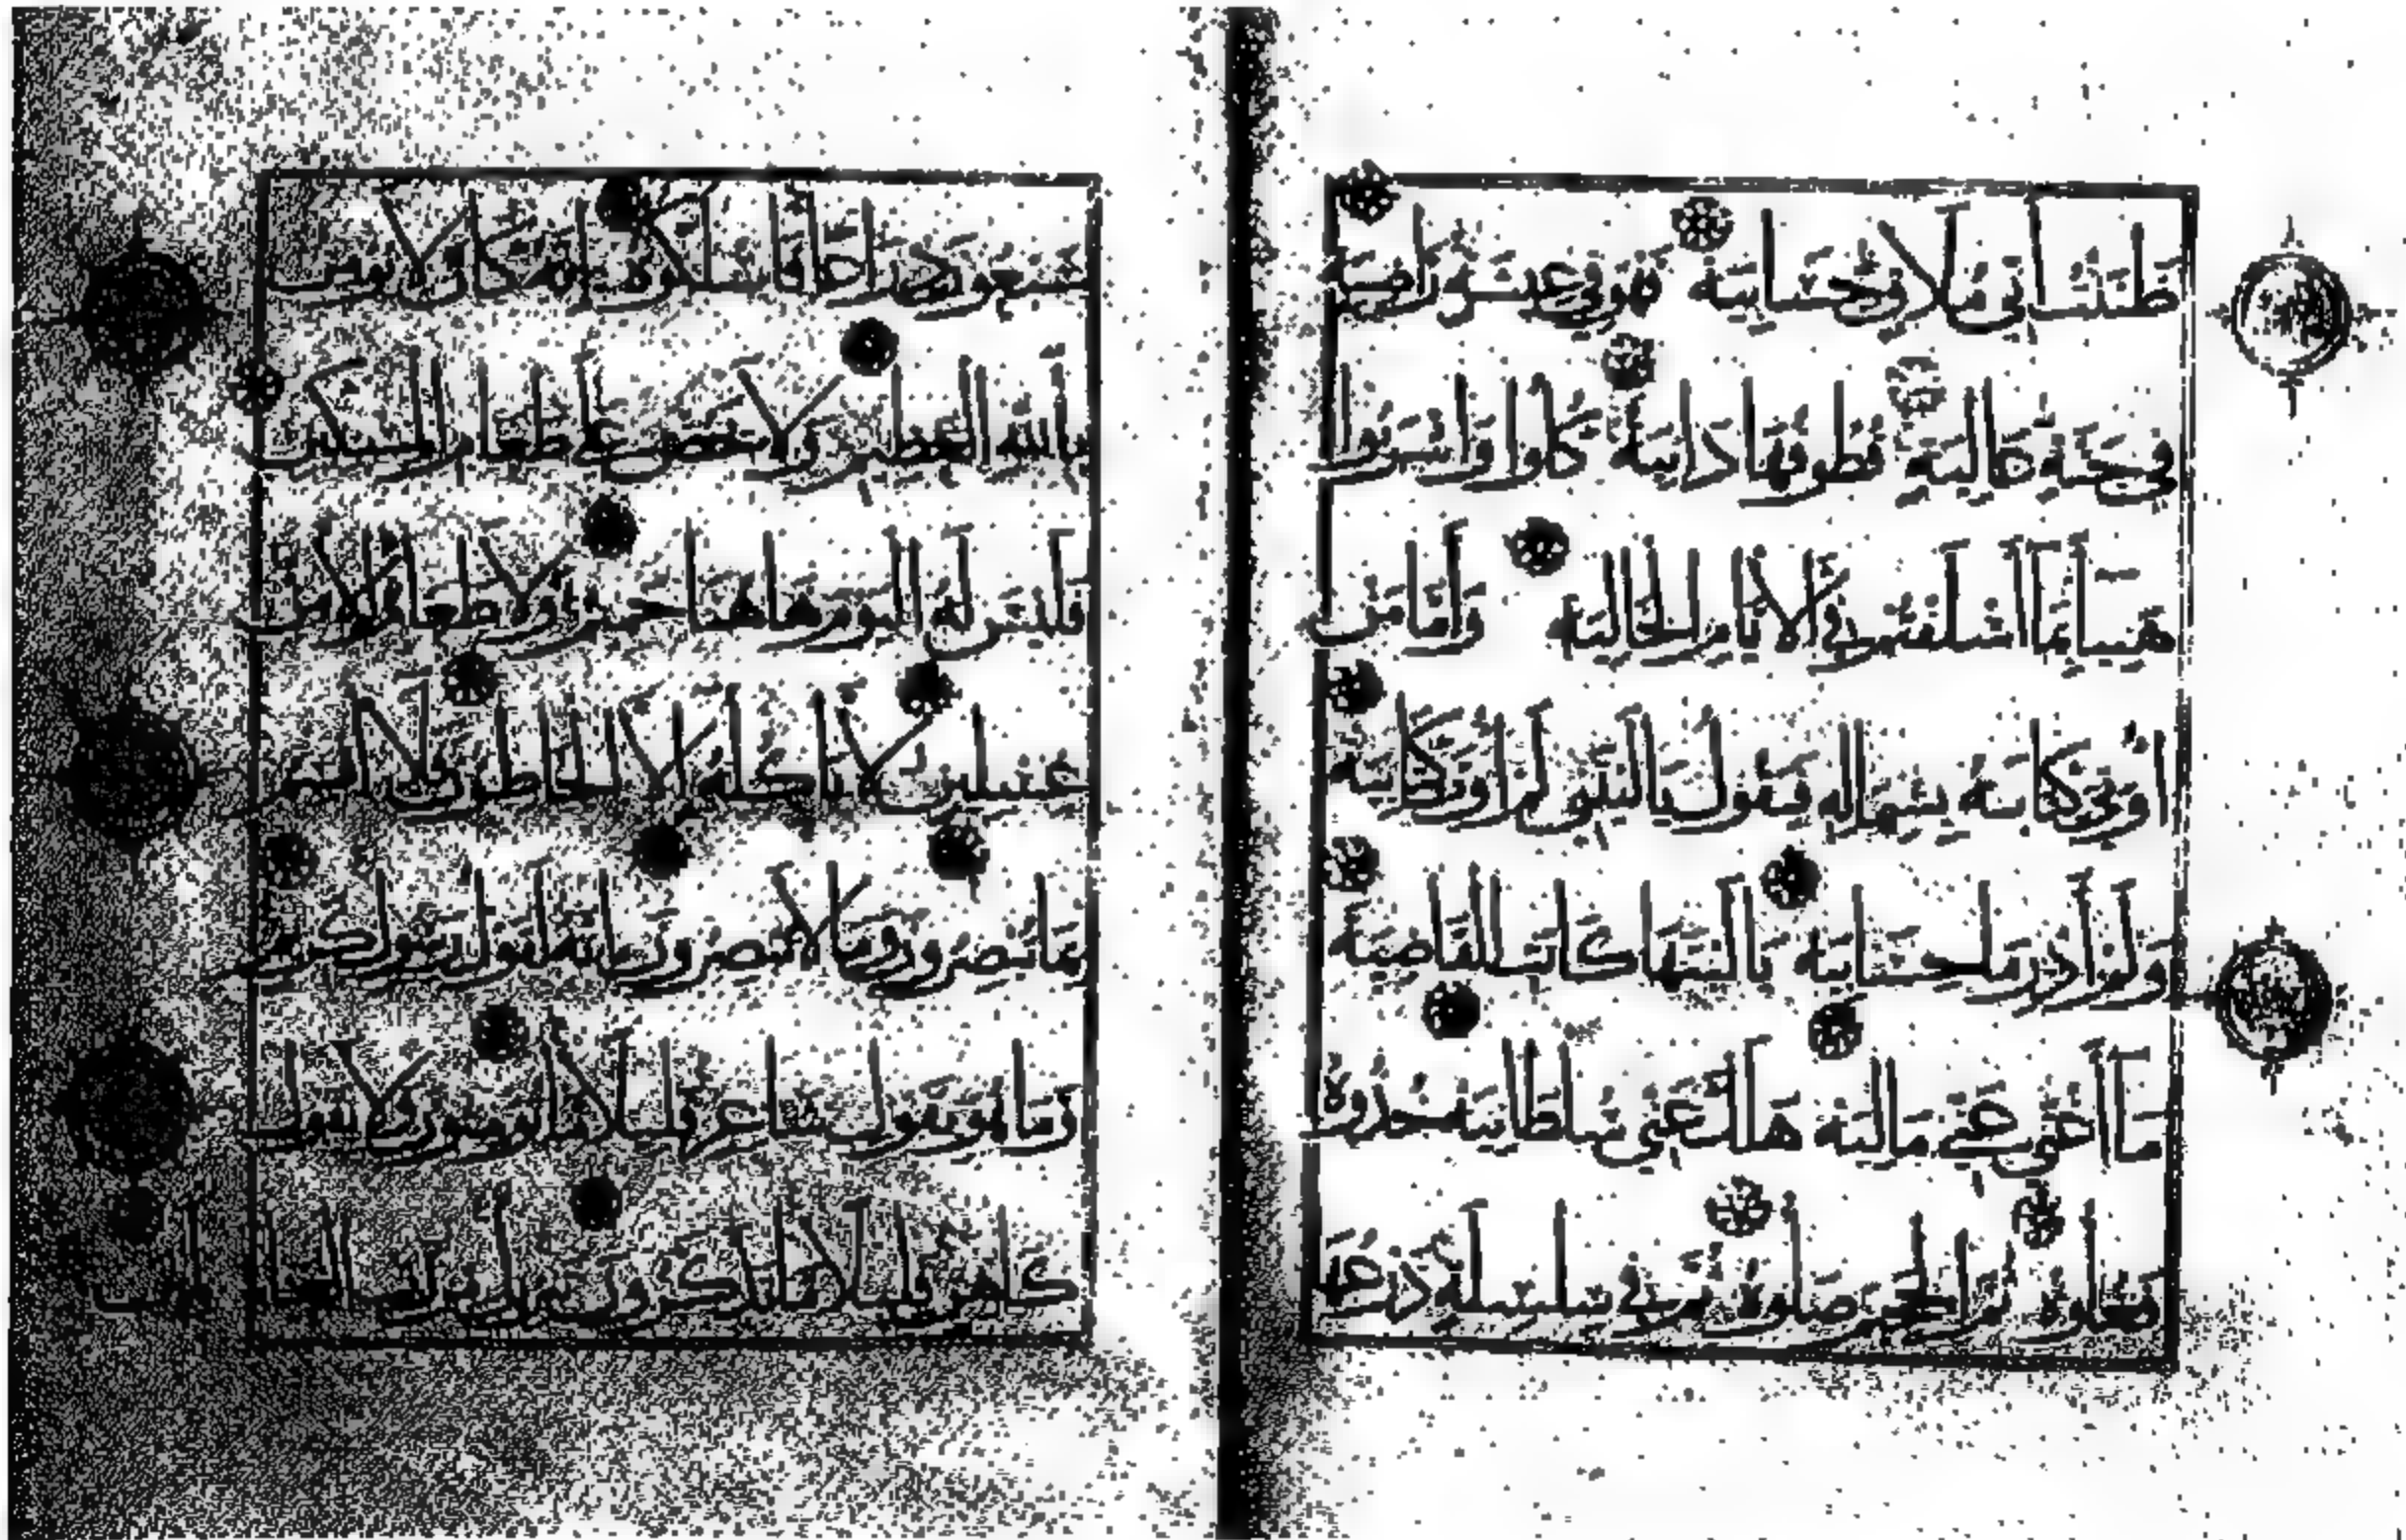 ظننت انى ملاق حسابيه فهو في عيشة راضية
في جنة عالية قطوفها دانية كلوا واشربوا
هنيا بما اسلفتم في الايام الخالية واما من
اوتي كتابه بشماله فيقول يا ليتني لم اوت كتابيه
ولم ادر ما حسابيه يا ليتها كانت القاضية
ما اغنى عني ماليه هلك عني سلطانيه خذوه
فغلوه ثم الجحيم صلوه ثم في سلسلة ذرعها
سبعون ذراعا فاسلكوه انه كان لا يومن
بالله العظيم ولا يحض على طعام المسكين
فليس له اليوم هاهنا حميم ولا طعام الا من
غسلين لا ياكله الا الخاطون فلا اقسم
بما تبصرون وما لا تبصرون انه لقول رسول كريم
وما هو بقول شاعر قليلا ما تومنون ولا بقول
كاهن قليلا ما تذكرون تنزيل من رب العالمين